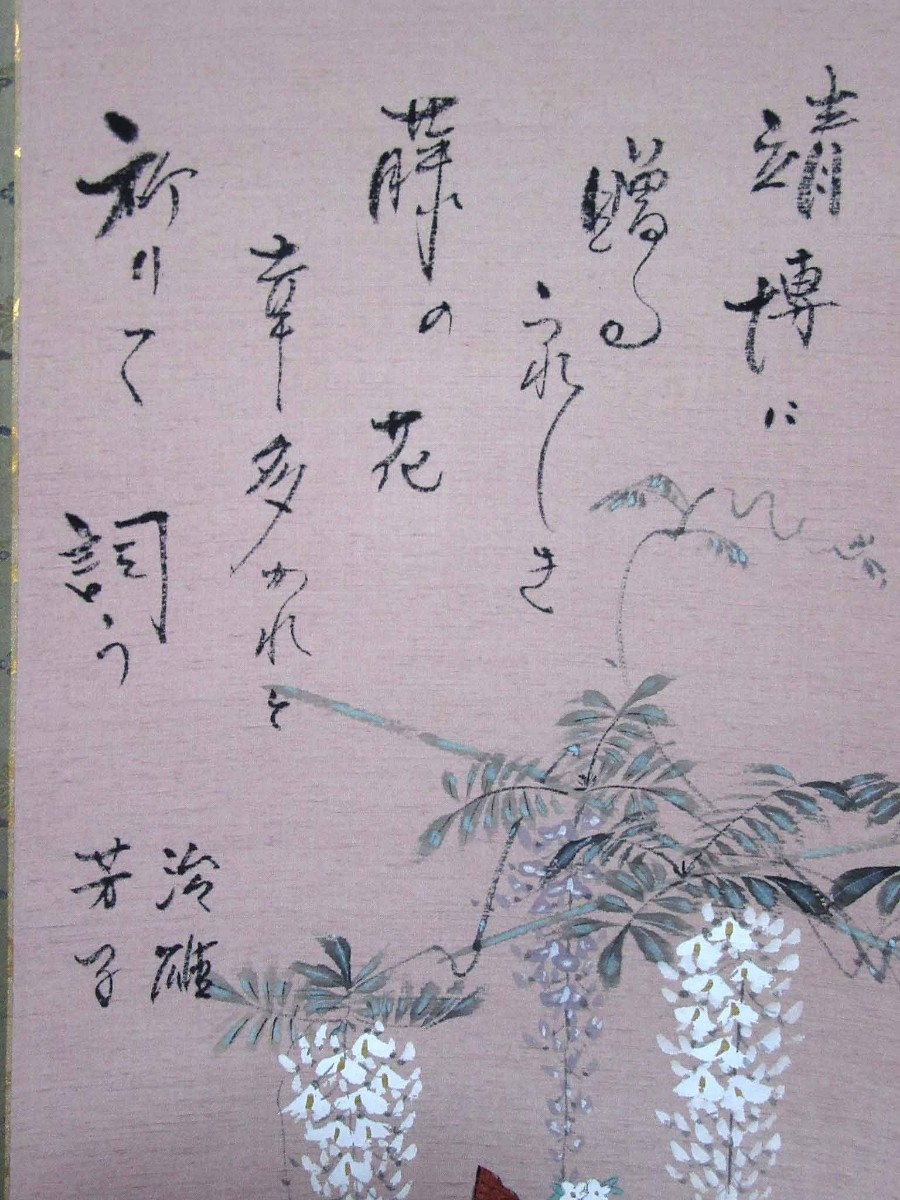 靖博に
贈る
うれしき
藤の花
幸多かれと
祈りて詞う
治雄
芳子